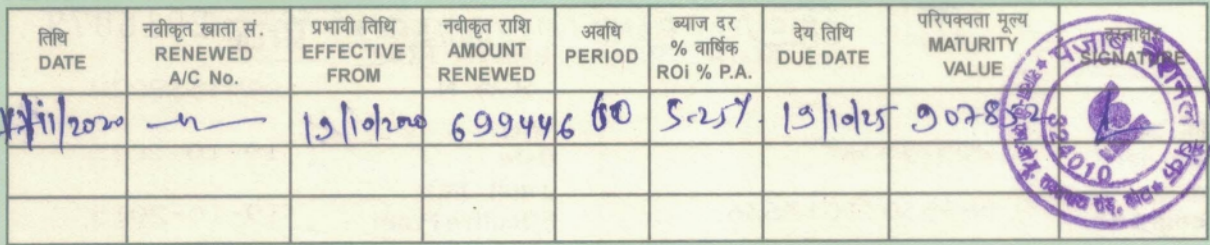 तिथि DATE
नवीकृत खाता सं. RENEWED A/C No.
प्रभावी तिथि EFFECTIVE FROM
नवीकृत राशि AMOUNT RENEWED
अवधि PERIOD
ब्याज दर % वार्षिक ROi % P.A.
देय तिथि DUE DATE
परिपक्वता मूल्य MATURITY VALUE
SIGNATURE
11/2020 19/10/2020 699446 60 5.25% 19/10/25 9078
पंजाब नैशनल बैंक
324010